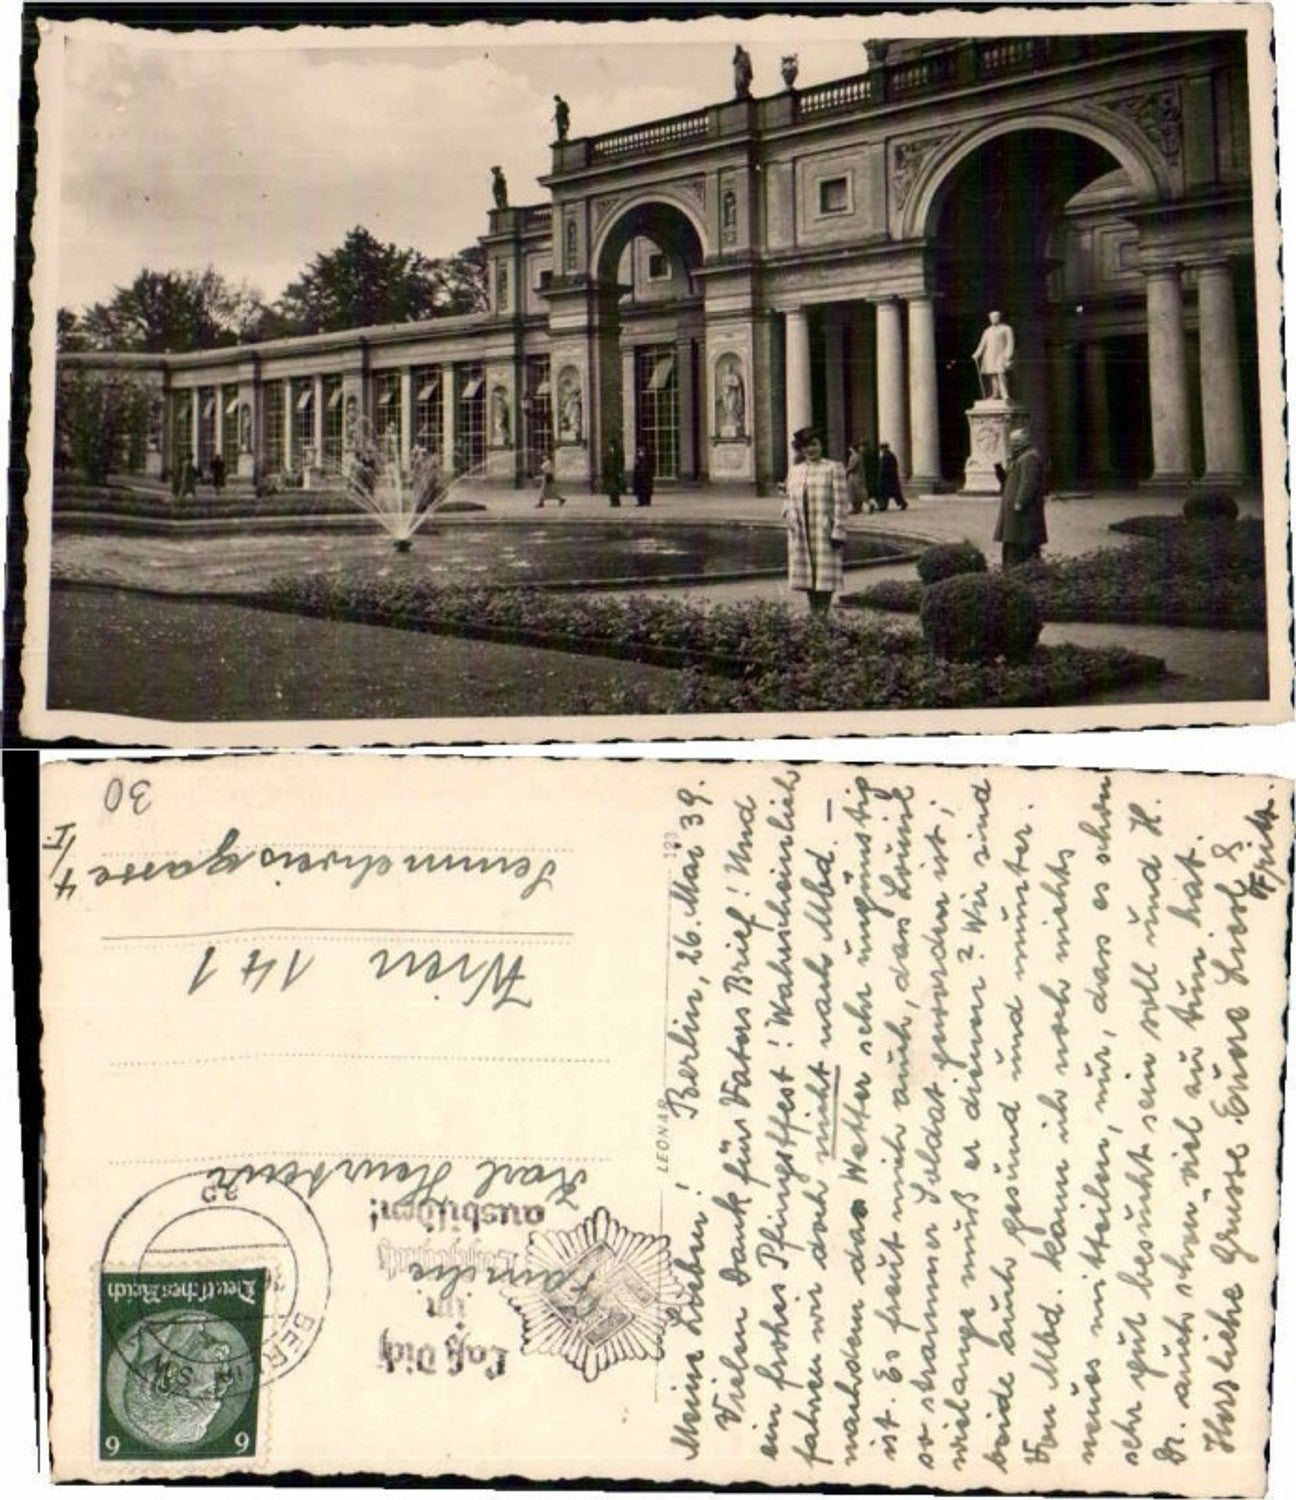 Meine Lieben!
Berlin, 26. Mai 39.
Vielen Dank für Vaters Brief! Und
ein frohes Pfingstfest! Wahrscheinlich
fahren wir doch nicht nach Mbd. –
nachdem das Wetter sehr ungünstig
ist. Es freut mich auch, dass Louis
so strammer Soldat geworden ist;
wielange muß er dienen? Wir sind
beide auch gesund und munter.
Von Mbd. kann ich noch nichts
neues mitteilen, nur, dass es schon
sehr gut besucht sein soll und H.
Dr. auch schon viel zu tun hat.
Herzliche Grüsse Eure Liesl &
Fritz.
LEONAR
123
Laß Dich
im
Luftschutz
ausbilden!
BERLIN
SW
Deutsches Reich
6 6
Familie
Karl
Wien 141
Semmelweisgasse 4/I.
30